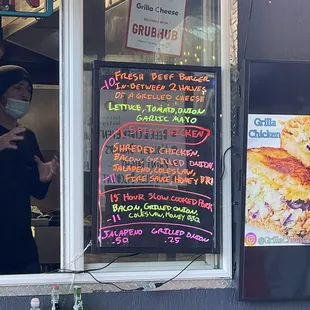 Grilla Cheese
GRUBHUB
10 FRESH BEEF BURGER
IN-BETWEEN 2 HALVES
OF A GRILLED CHEESE
LETTUCE, TOMATO, ONION
GARLIC MAYO
CHICKEN
SHREDED CHICKEN
BACON, GRILLED ONION,
JALAPENO, COLESLAW,
-11 FIRE SAUCE, HONEY BBQ
15 HOUR SLOW COOKED PORK
BACON, GRILLED ONION,
-11 COLESLAW, HONEY BBQ
JALAPENO GRILLED ONION
.50 .25
Grilla
Chicken